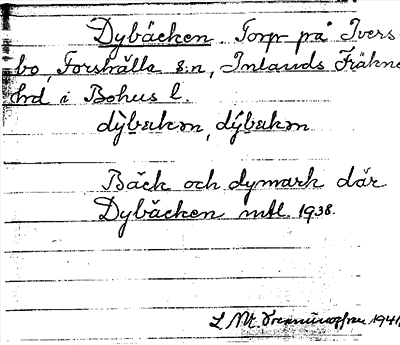 Dybäcken Torp på Ivers
bo, Forshälla s:n, Inlands Fräkne
hrd i Bohus l.
dỳbækən, dýbækən
Bäck och dymark där
Dybäcken mtl 1938.
1941